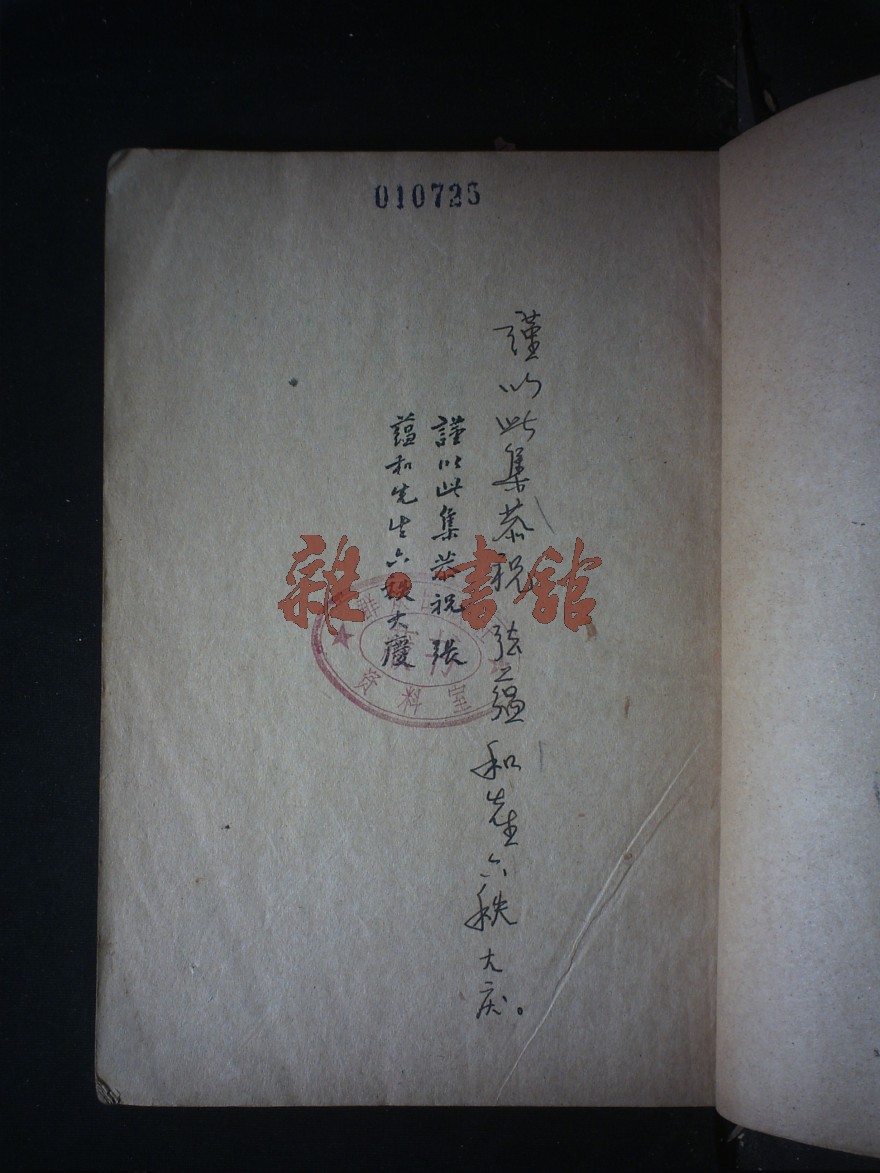 010725
謹以此集恭祝 张蕴和先生六秩大庆。
謹以此集恭祝 張
蘊和先生六秩大慶
雜·書館
资料室